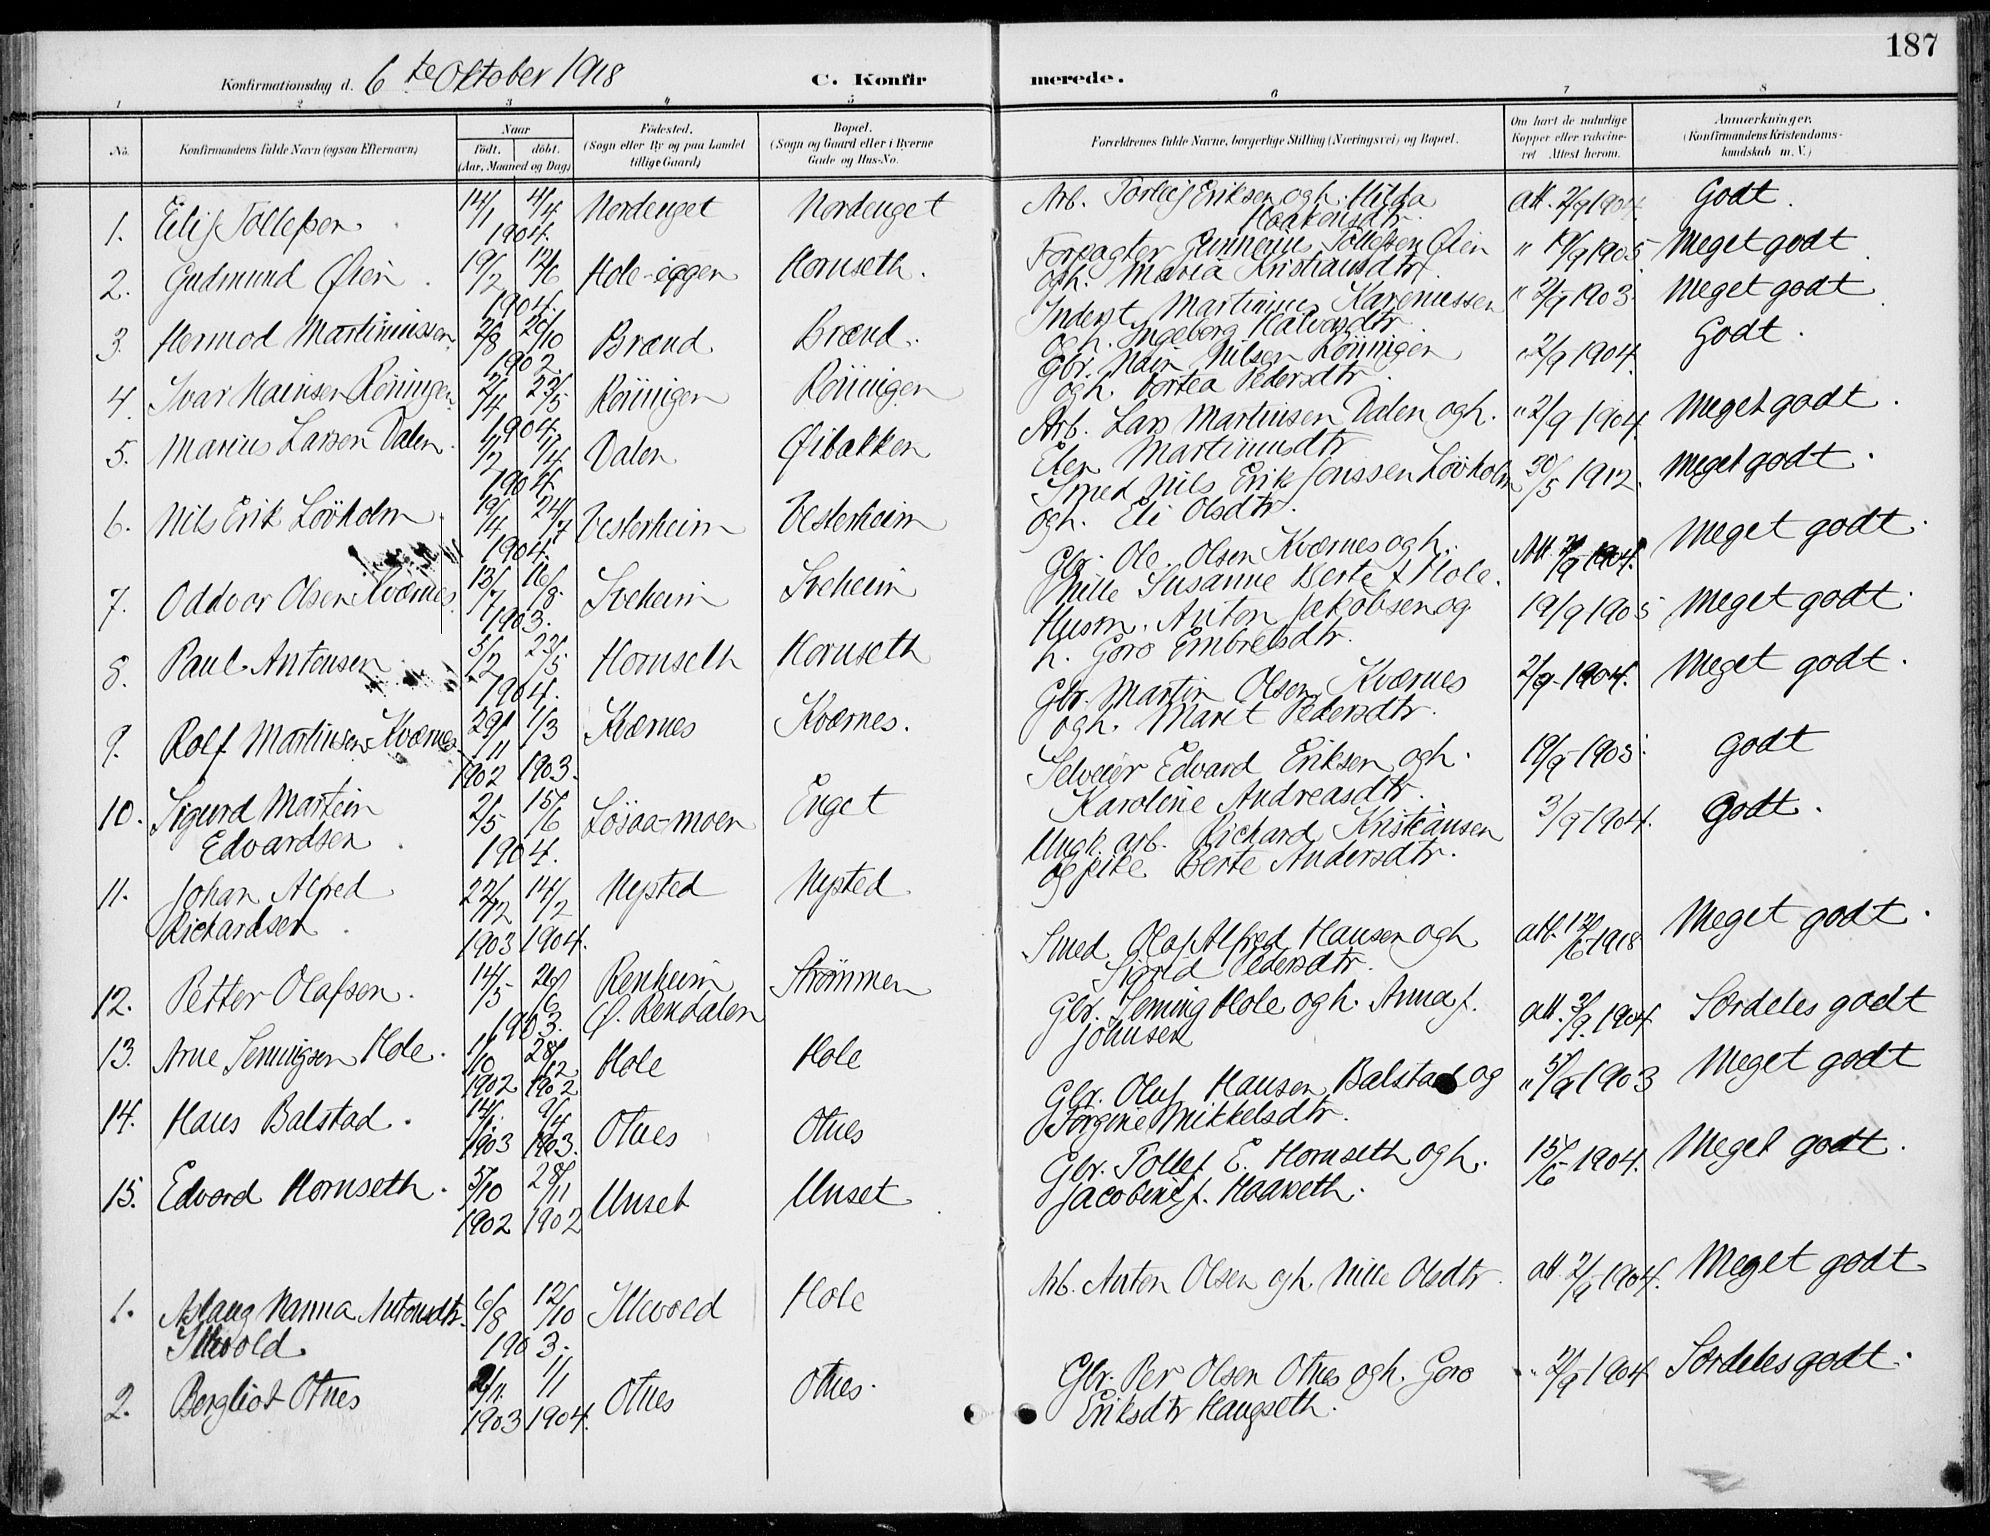 187
Konfirmationsdag d. 6te Oktober 1918
C. Konfirmerede.
1 2 3 4 5 6 7 8
No. Konfirmandens fulde Navn (ogsaa Efternavn) Naar født. døbt. (Aar, Maaned og Dag) Fødested. (Sogn eller By og paa Landet tillige Gaard) Bopæl. (Sogn og Gaard eller i Byerne Gade og Hus-No. Forældrenes fulde Navne, borgerlige Stilling (Næringsvei) og Bopæl. Om havt de naturlige Kopper eller vakcineret Attest herom. Anmærkninger. (Konfirmandens Kristendomskundskab m. V.)
1. Eilif Tollefsen. 14/1 4/4 1904. Nordenget Nordenget Arb. Torleif Eriksen og h. Hilda Haakensdtr. att. 2/9 1904. Godt.
2. Gudmund Øien. 19/2 12/6 1904. Hole-eggen Hornseth. Forpagter Gunnerius Tollefsen Øien og h. Maria Kristiansdtr. " 19/9 1905 Meget godt.
3. Hermod Martinussen. 2/8 26/10 1902. Brænd. Brænd. Inderst Martinius Karenussen og h. Ingeborg Halvorsdtr. " 2/9 1903. Meget godt.
4. Ivar Hainsen Rönningen. 2/4 23/5 1904. Rönnigen Rönnigen Gbr. Hain Nilsen Rönningen og h. Dortea Pedersdtr. " 2/9 1904. Godt.
5. Marius Larsen Dalen. 1/2 17/4 1904. Dalen Øibakken Arb. Lars Martinsen Dalen og h. Elen Martinusdtr. " 2/9 1904. Meget godt.
6. Nils Erik Lövholm. 19/4 24/7 1904. Vesterheim Vesterheim Smed Nils Erik Jonssen Lövholm og h. Eli Olsdtr. 30/5 1912. Meget godt.
7. Oddvar Olsen Kværnes. 13/7 16/8 1903. Sveheim Sveheim Gbr. Ole Olsen Kværnes og h. Mille Susanne Berte f. Hole. Att. 2/9 1904. Meget godt.
8. Paul Antonsen 5/2 23/5 1904. Hornseth Hornseth Husm. Anton Jakobsen og h. Goro Embretsdtr. 19/9 1905 Meget godt.
9. Rolf Martinsen Kværnes 29/11 1902 1/3 1903. Kværnes Kværnes. Gbr. Martin Olsen Kværnes og h. Marit Pedersdtr. 2/9 1904. Meget godt.
10. Sigurd Martein Edvardsen. 2/5 15/6 1904. Lösaa-moen Enget Selveier Edvard Eriksen og h. Karoline Andreasdtr. 19/9 1905. Godt
11. Johan Alfred Richardsen. 22/12 1903 14/2 1904. Nysted Nysted. Ungk. arb. Richard Kristiansen og pike Berte Andersdtr. 3/9 1904. Godt.
12. Petter Olafsen. 14/5 26/6 1903. Renheim Ø. Rendalen Strömmen Smed Olaf Alfred Hansen og h Sigrid Pedersdtr. att. 12/6 1918 Meget godt.
13. Arne Semingsen Hole. 1/10 1902 28/12 1902 Hole Hole Gbr. Seming Hole og h. Anna f. Johnsen att. 3/9. 1904 Særdeles godt
14. Hans Balstad. 14/1. 1903 9/4 1903. Otnes Otnes Gbr. Oluf Hansen Balstad og Jörgine Mikkelsdtr. " 5/9 1903 Meget godt
15. Edvard Hornseth. 5/10 1902 28/11 1902 Unset Unset Gbr. Tollef E. Hornseth og h. Jacobine f. Haarseth. 15/6 1904. Meget godt.
1. Aslaug Hanna Antonsdtr. Illevold. 6/8 12/10 1903. Illevold Hole Arb. Anton Olsen og h. Mille Olsdtr. att. 2/9 1904. Meget godt
2. Bergliot Otnes 1903 1/1 1904. Otnes Otnes. Gbr. Per Olsen Otnes og h. Goro Eriksdtr Haugseth. " 2/9 1904 Særdeles godt.